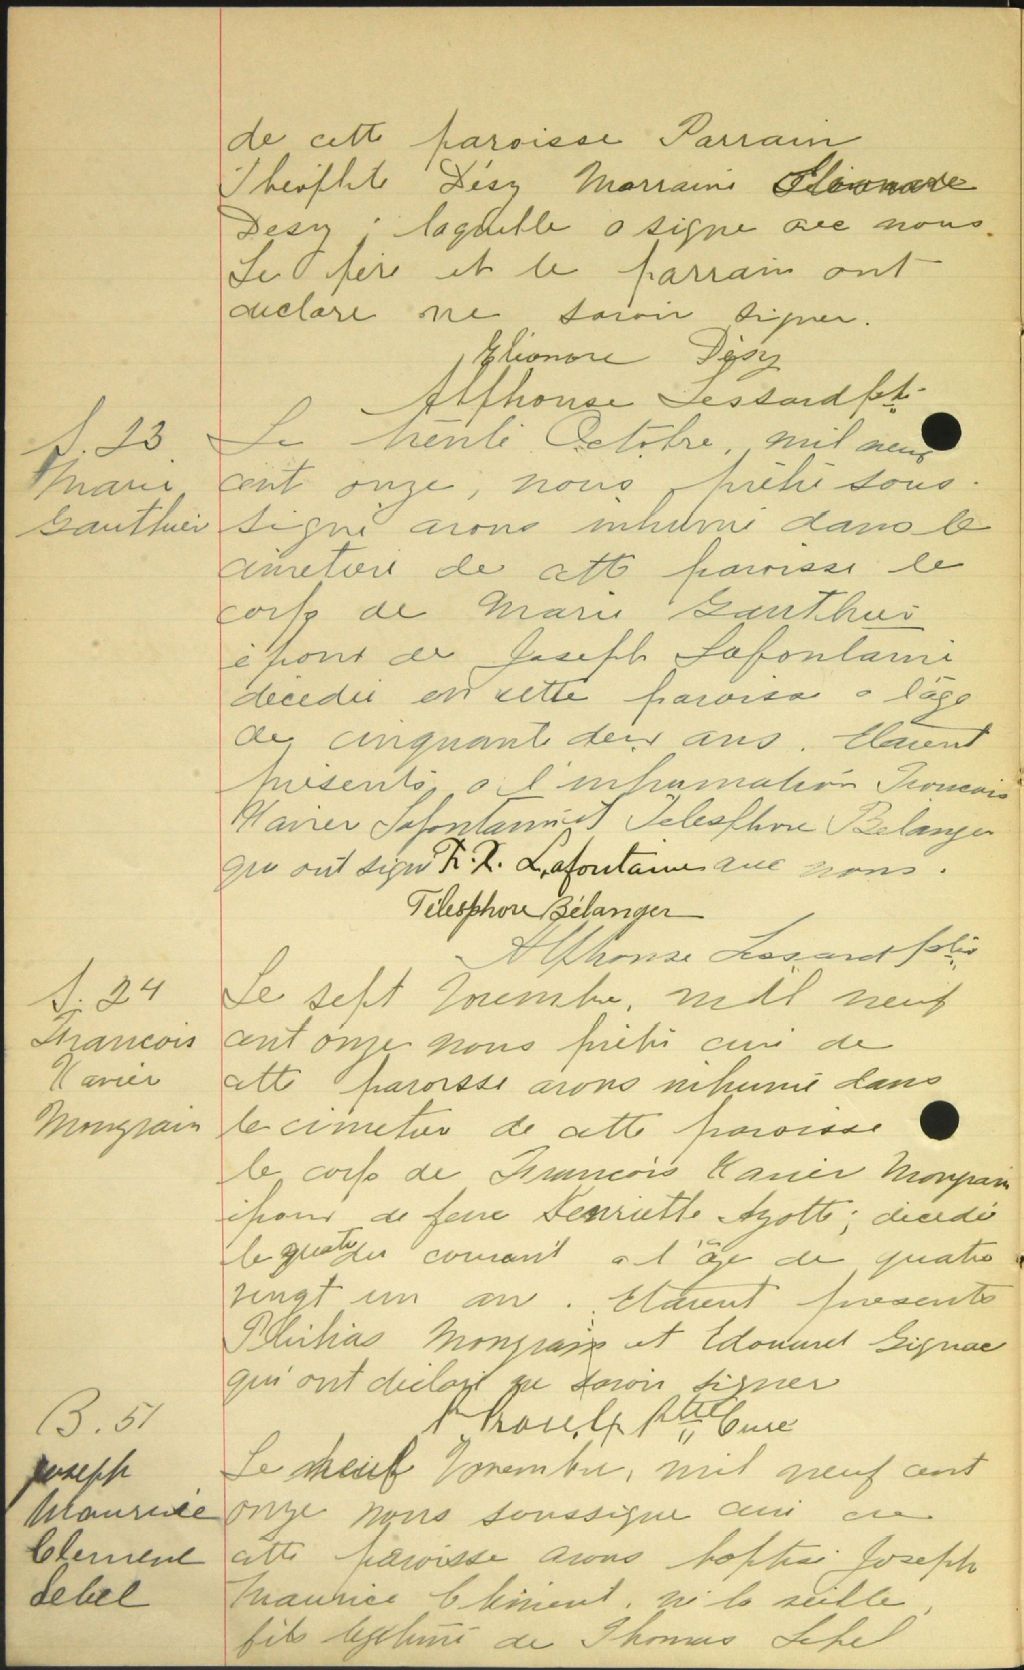 de cette paroisse Parrain
Theophile Désy Marraine Elionore
Desy ; laquelle a signe avec nous.
Le père et le parrain ont
declare ne savoir signer.
Elionore Désy
Alphonse Lessard ptre
S. 23
Marie
Gauthier
Le trente Octobre, mil neuf
cent onze, nous prêtre sous-
signé avons inhumé dans le
cimetiere de cette paroisse le
corps de Marie Gauthier
épouse de Joseph Lafontaine
décédée en cette paroisse a l'âge
de cinquante deux ans. Etaient
présents a l'inhumation Francois
Xavier Lafontaine et Telesphore Bélanger
qui ont signé F. X. Lafontaine avec nous.
Télesphore Bélanger
Alphonse Lessard ptre
S. 24
Francois
Xavier
Mongrain
Le sept Novembre, mil neuf
cent onze nous prêtre curé de
cette paroisse avons inhumé dans
le cimetiere de cette paroisse
le corps de Francois Xavier Mongrain
époux de feue Henriette Ayotte ; decédé
le quatre du courant a l'âge de quatre
vingt un an. Etaient presents
Mongrain et Edouard Gignac
qui ont déclaré ne savoir signer
Ptre Cure
B. 51
Joseph
Maurice
Clement
Lebel
Le neuf Novembre, mil neuf cent
onze nous soussigne curé de
cette paroisse avons baptisé Joseph
Maurice Clément, né la veille,
fils legitime de Thomas Lebel